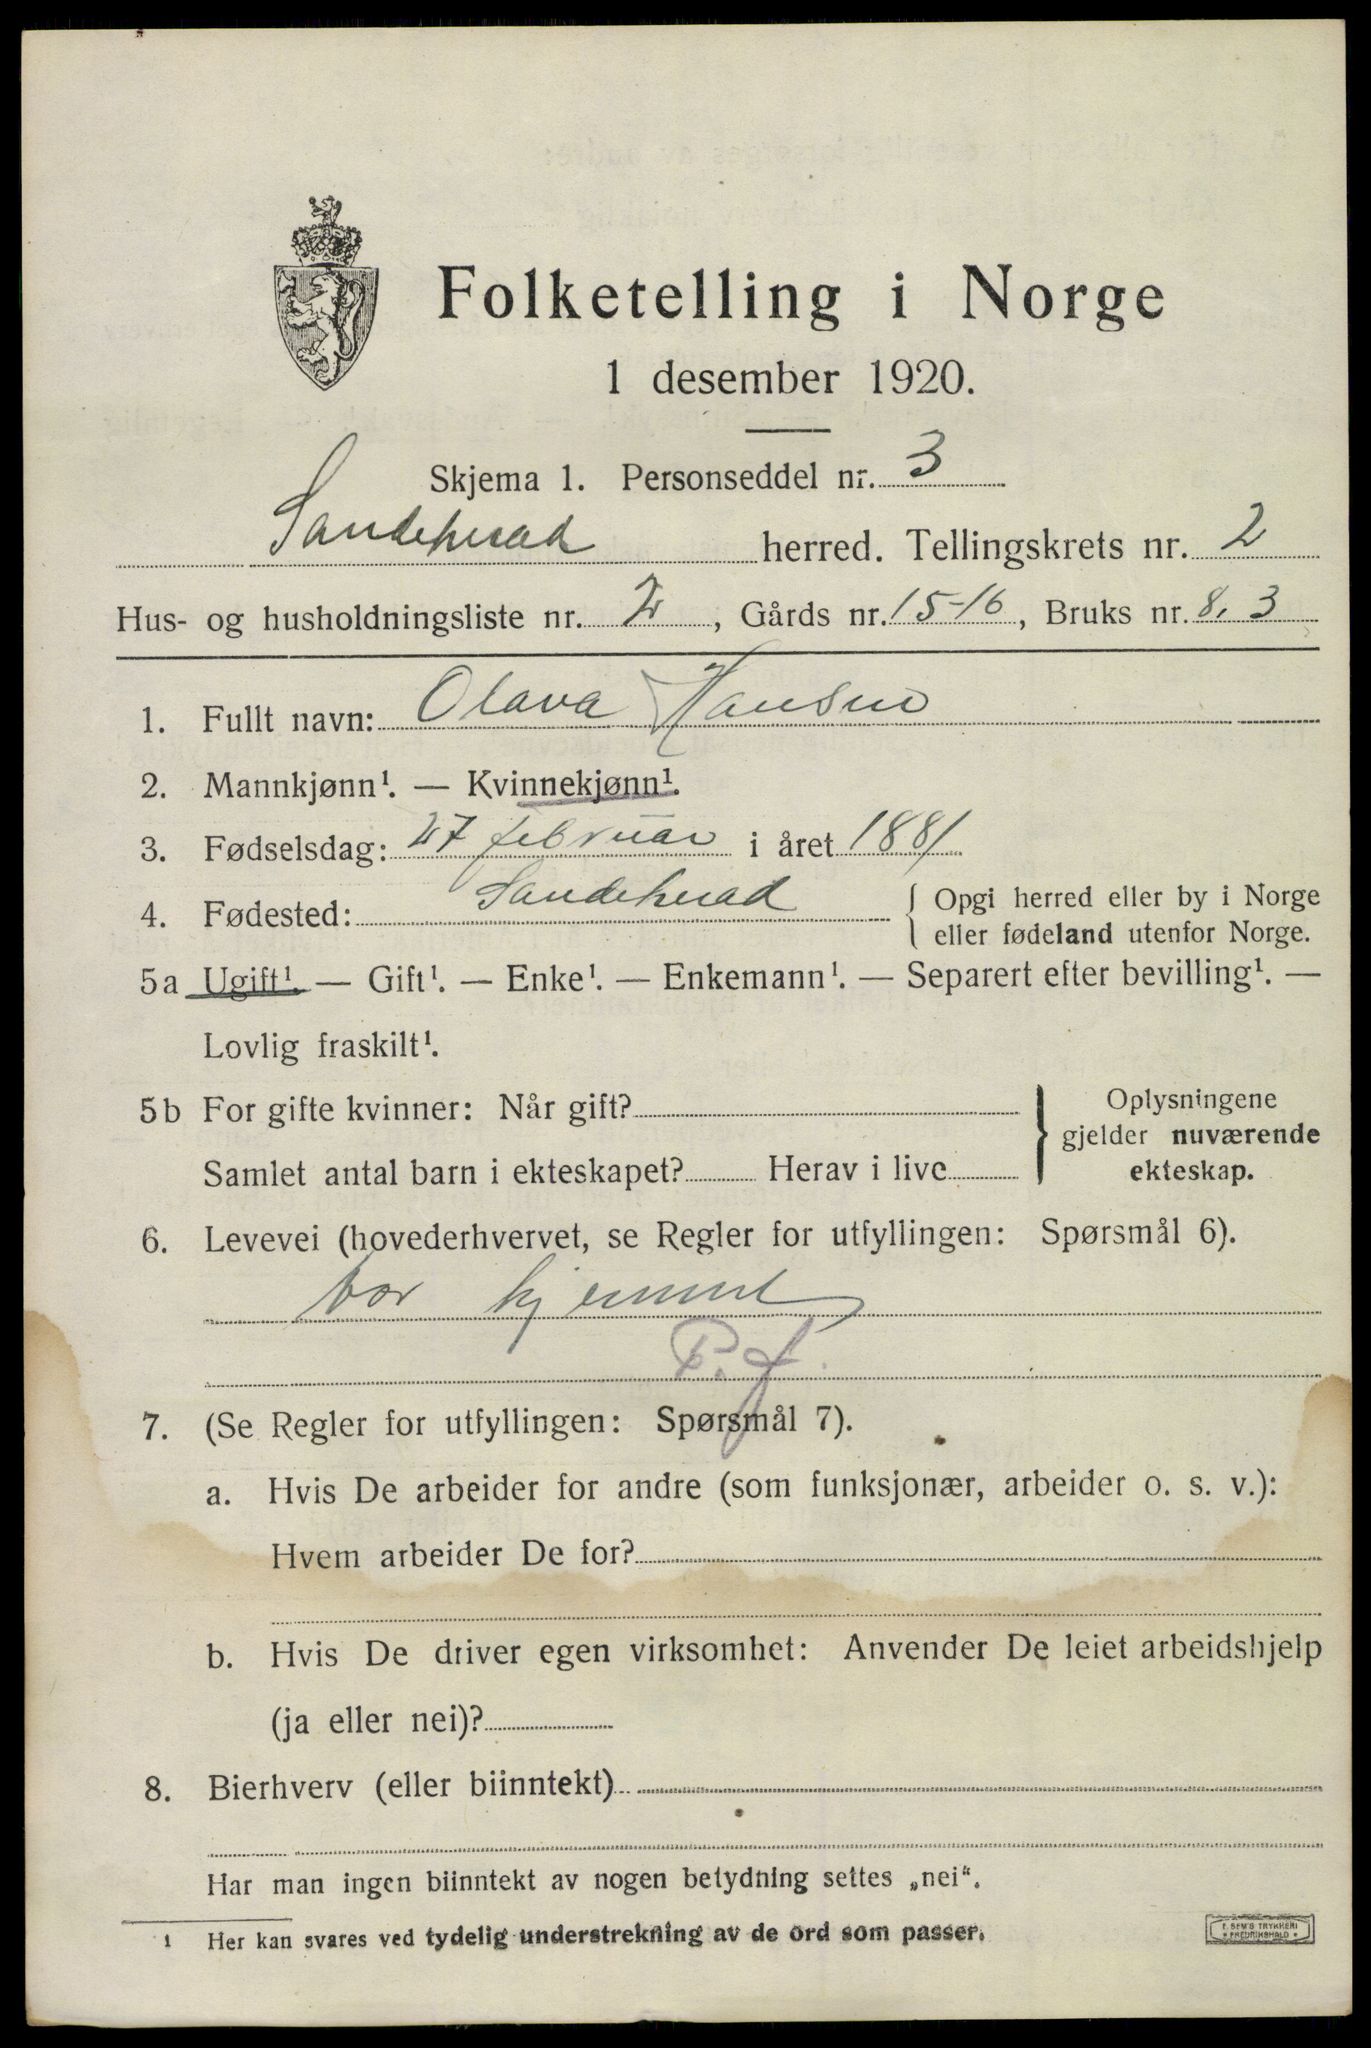 Folketelling i Norge
1 desember 1920.
Skjema 1. Personseddel nr. 3
Sandeherad herred. Tellingskrets nr. 2
Hus- og husholdningsliste nr. 2, Gårds nr. 15-16, Bruks nr. 8, 3
1. Fullt navn: Olava Hansen
2. Mannkjønn¹. — Kvinnekjønn¹.
3. Fødselsdag: 27 februar i året 1881
4. Fødested: Sandeherad { Opgi herred eller by i Norge
eller fødeland utenfor Norge.
5a Ugift¹. — Gift¹. — Enke¹. — Enkemann¹. — Separert efter bevilling¹. —
Lovlig fraskilt¹.
5b For gifte kvinner: Når gift?
Samlet antal barn i ekteskapet? Herav i live
} Oplysningene
gjelder nuværende
ekteskap.
6. Levevei (hovederhvervet, se Regler for utfyllingen: Spørsmål 6).
bor hjemme
P.f.
7. (Se Regler for utfyllingen: Spørsmål 7).
a. Hvis De arbeider for andre (som funksjonær, arbeider o. s. v.):
Hvem arbeider De for?
b. Hvis De driver egen virksomhet: Anvender De leiet arbeidshjelp
(ja eller nei)?
8. Bierhverv (eller biinntekt)
Har man ingen biinntekt av nogen betydning settes „nei“.
¹ Her kan svares ved tydelig understrekning av de ord som passer.
E. SEM'S TRYKKERI
FREDRIKSHALD